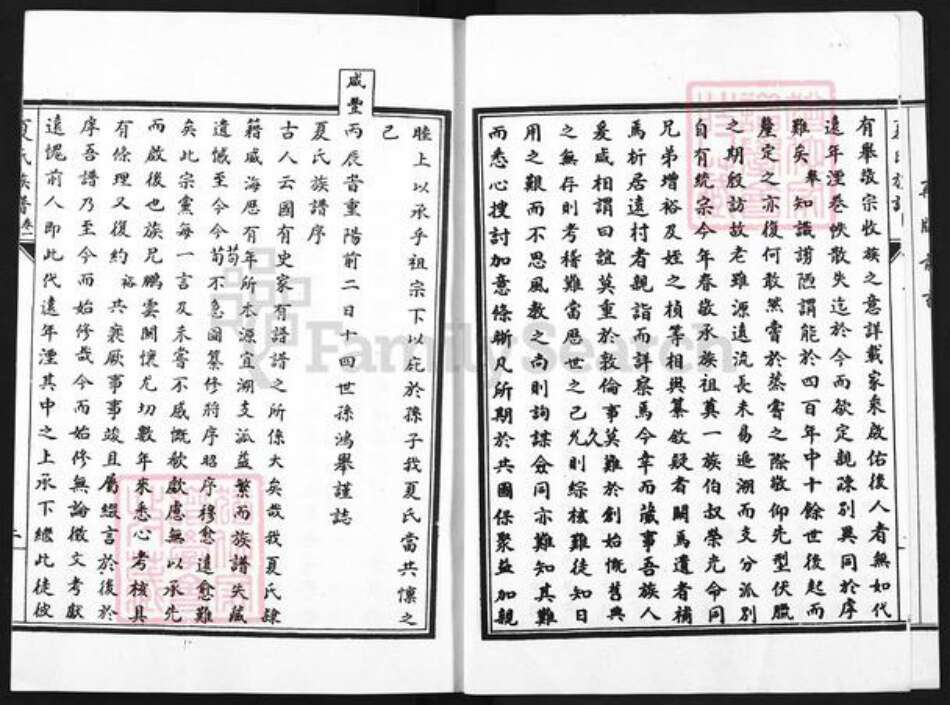 有舉敬宗收族之意詳載家乘啟佑後人者無如代
遠年湮卷帙散失迄於今而欲定親疎別異同於序
難矣舉知識譾陋謂能於四百年中十餘世後起而
釐定之亦復何敢然嘗於蒸嘗之際敬仰先型伏臘
之期殷訪故老雖源遠流長未易追溯而支分派別
自有統宗今年春敬承族祖其一族伯叔榮光命同
兄弟增裕及姪之楨等相與纂敘疑者闕焉遺者補
焉析居遠村者親詣而詳察焉今幸而蕆事吾族人
爰咸相謂曰誼莫重於敦倫事莫難於創始慨舊典
之無存則考稽難當歷世之已久則綜核難徒知日
用之艱而不思風教之尚則詢謀僉同亦難知其難
而悉心搜討加意條晰凡所期於共圖保聚益加親
睦上以承乎祖宗下以庇於孫子我夏氏當共懷之
已
咸豐丙辰省重陽前二日十四世孫鴻舉謹誌
夏氏族譜序
古人云國有史家有譜譜之所係大矣哉我夏氏隸
籍威海歷有年所本源宜溯支派益繁而族譜失藏
遺憾至今今苟不急圖纂修將序昭序穆愈遠愈難
矣此宗黨每一言及未嘗不感慨欷歔慮無以承先
而啟後也族兄鵬雲關懷尤切數年來悉心考核具
有條理又復約裕共襄厥事事竣且屬綴言於後於
序吾譜乃至今而始修哉今而始修無論徵文考獻
遠愧前人即此代遠年湮其中之上承下繼此徒彼
夏氏族譜卷一
二
FamilySearch